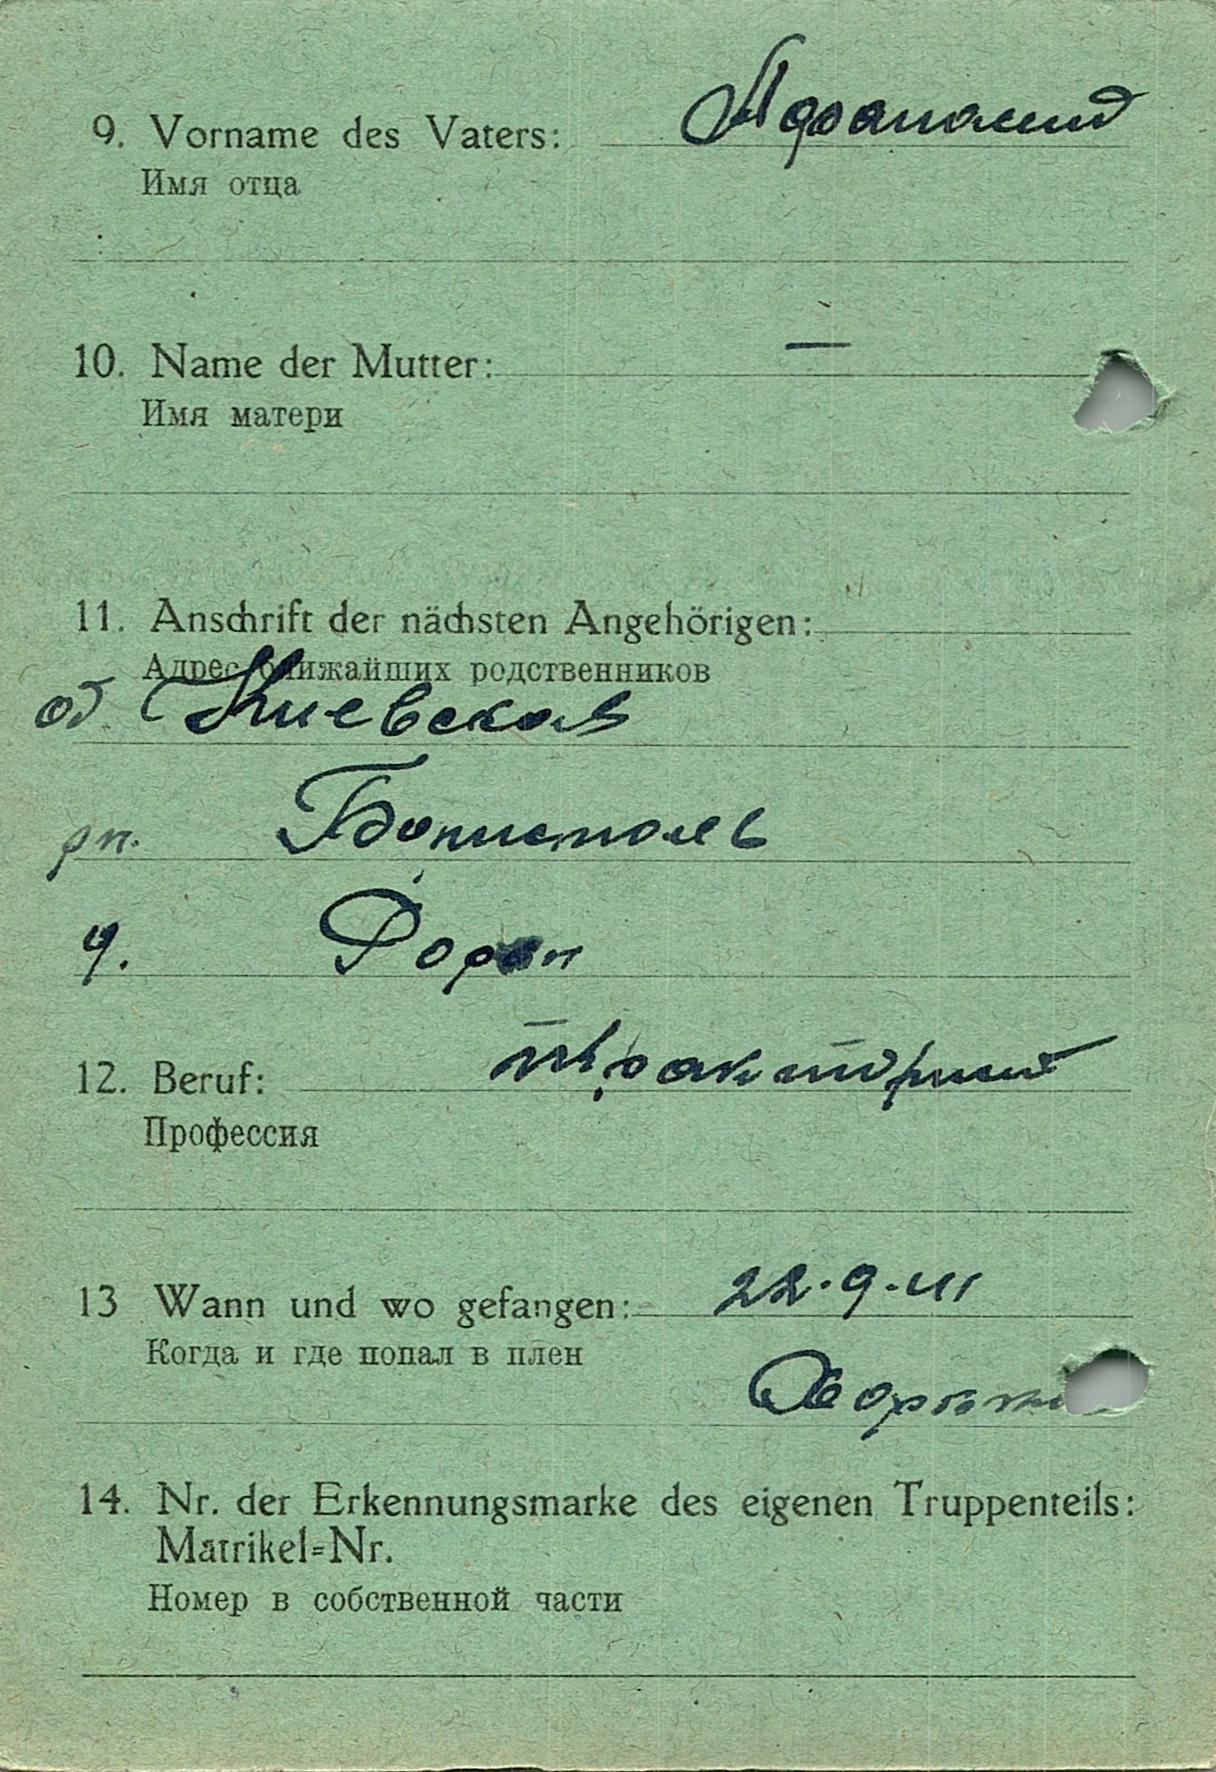 9. Vorname des Vaters: Афанасий
Имя отца
10. Name der Mutter: —
Имя матери
11. Anschrift der nächsten Angehörigen:
Адрес ближайших родственников
об Киевская
Бориспол
12. Beruf:
Профессия
13 Wann und wo gefangen: 22.9.41
Когда и где попал в плен
14. Nr. der Erkennungsmarke des eigenen Truppenteils:
Matrikel=Nr.
Номер в собственной части